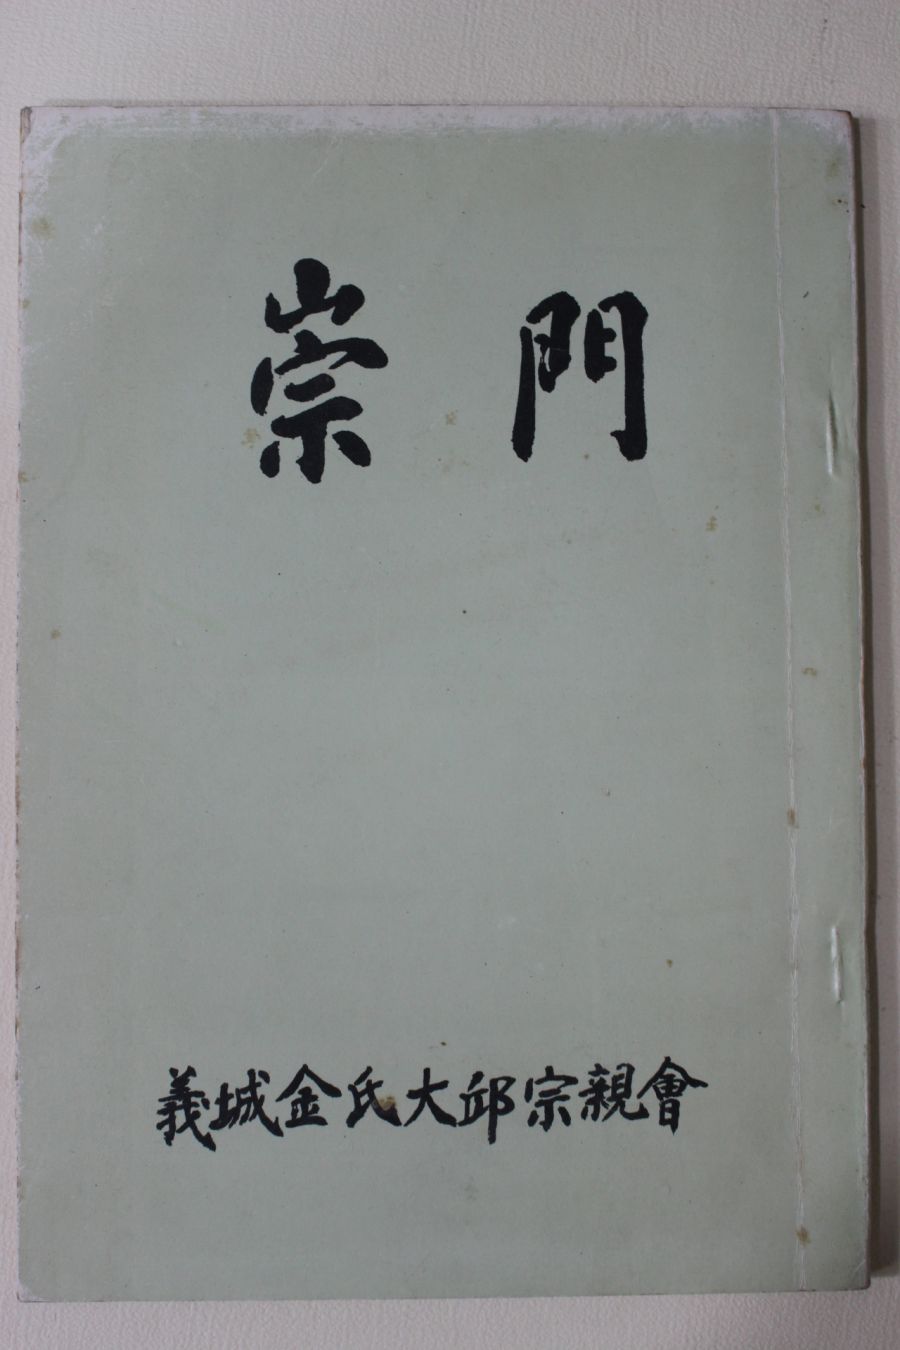 崇門
義城金氏大邱宗親會